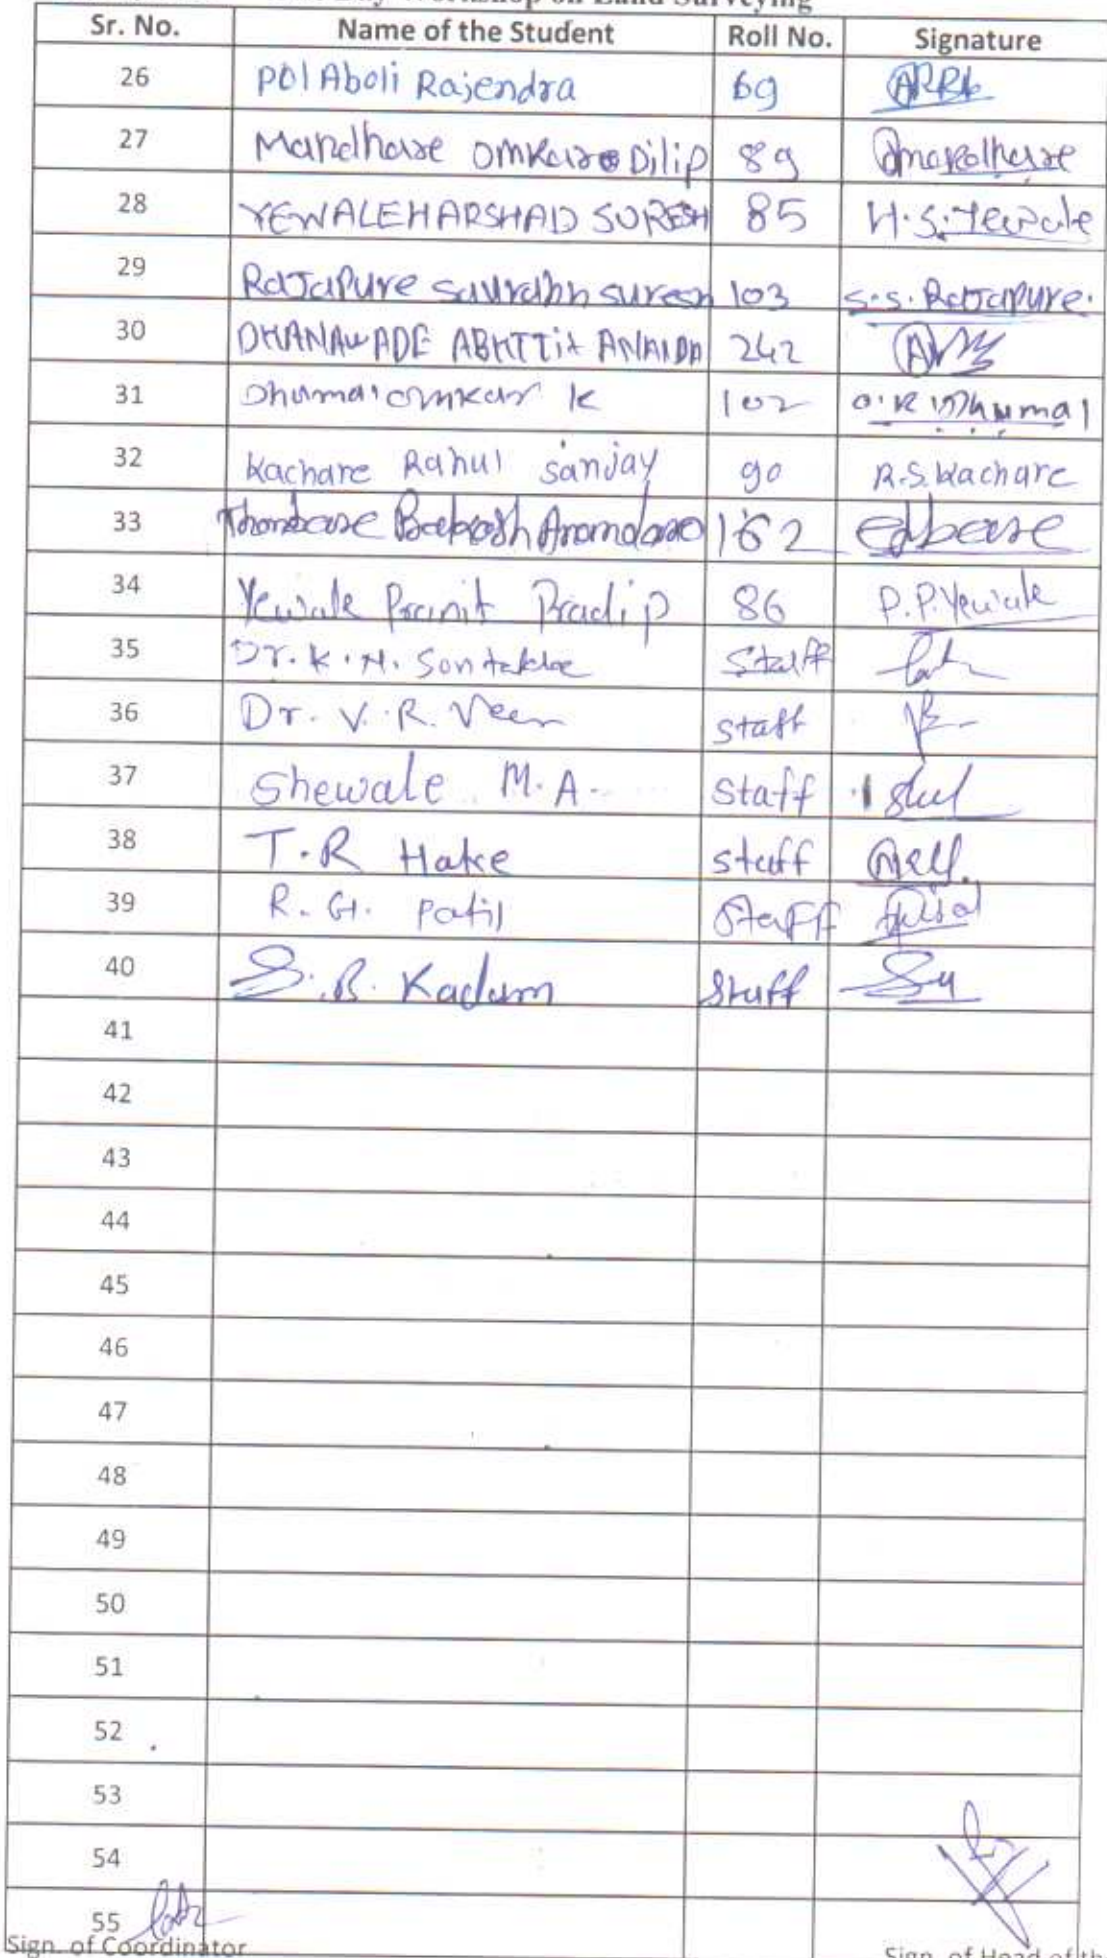 Workshop on Land Surveying
Sr. No. Name of the Student Roll No. Signature
26 Pol Aboli Rajendra 69
27 Mandhare Omkar Dilip 89
28 YEWALE HARSHAD SURESH 85 H.S. Yewale
29 Rajapure Saurabh suresh 103 S.S. Rajapure.
30 DHANAWADE 242
31 Dhumal omkar K 102 O.K. Dhumal
32 Kachare Rahul Sanjay 90 R.S. Kachare
33 162
34 Yewale Pranit Pradip 86 P.P. Yewale
35 Dr. K. N. Sontakke Staff
36 Dr. V. R. Veer staff
37 Shewale M. A. Staff
38 T.R Hake staff
39 R. G. Patil Staff
40 S. B. Kadam Staff
41
42
43
44
45
46
47
48
49
50
51
52
53
54
55
Sign. of Coordinator Sign. of Head of